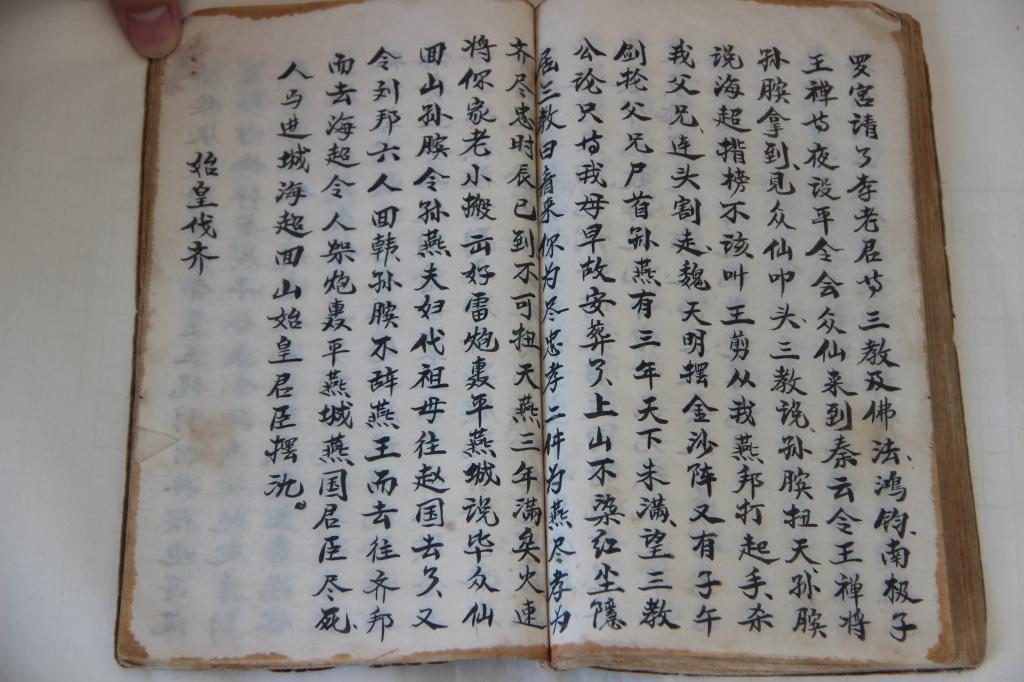 罗宫请了李老君与三教及佛法、鸿钧、南极子
王禅与夜设平令会众仙来到秦云令王禅将
孙膑拿到、见众仙叩头、三教说、孙膑扭天、孙膑
说海超揩榜不该叫王剪从我燕邦打起手、杀
我父兄、连头割走、魏天明摆金沙阵又有子午
剑抡父兄尸首孙燕有三年天下未满、望三教
公论只与我母早故安葬了、上山不染红尘隐
居三教曰看来你为尽忠孝二件为燕尽孝为
齐尽忠时辰已到不可扭天燕三年满矣火速
将你家老小搬云好雷炮轰平燕城说毕众仙
回山孙膑令孙燕夫妇代祖母往赵国去了、又
令列邦六人回韩、孙膑不辞燕王而去往齐邦
而去海超令人架炮轰平燕城燕国君臣尽死、
人马进城海超回山始皇君臣摆沈。
始皇伐齐